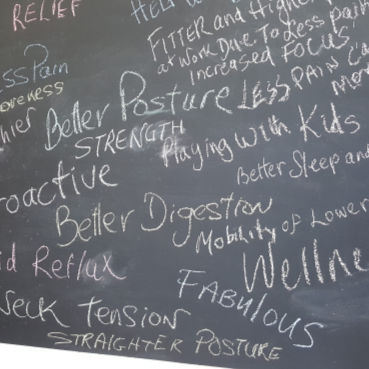 RELIEF
FITTER and Higher
at Work Due To Less Pain
Increased FOCUS
ess Pain
Less PAIN
Better Posture
STRENGTH
Playing with Kids
Better Sleep and
roactive
Better Digestion
Mobility of Lower
id Reflax
Wellne
FABULOUS
Neck Tension
STRAIGHTER POSTURE